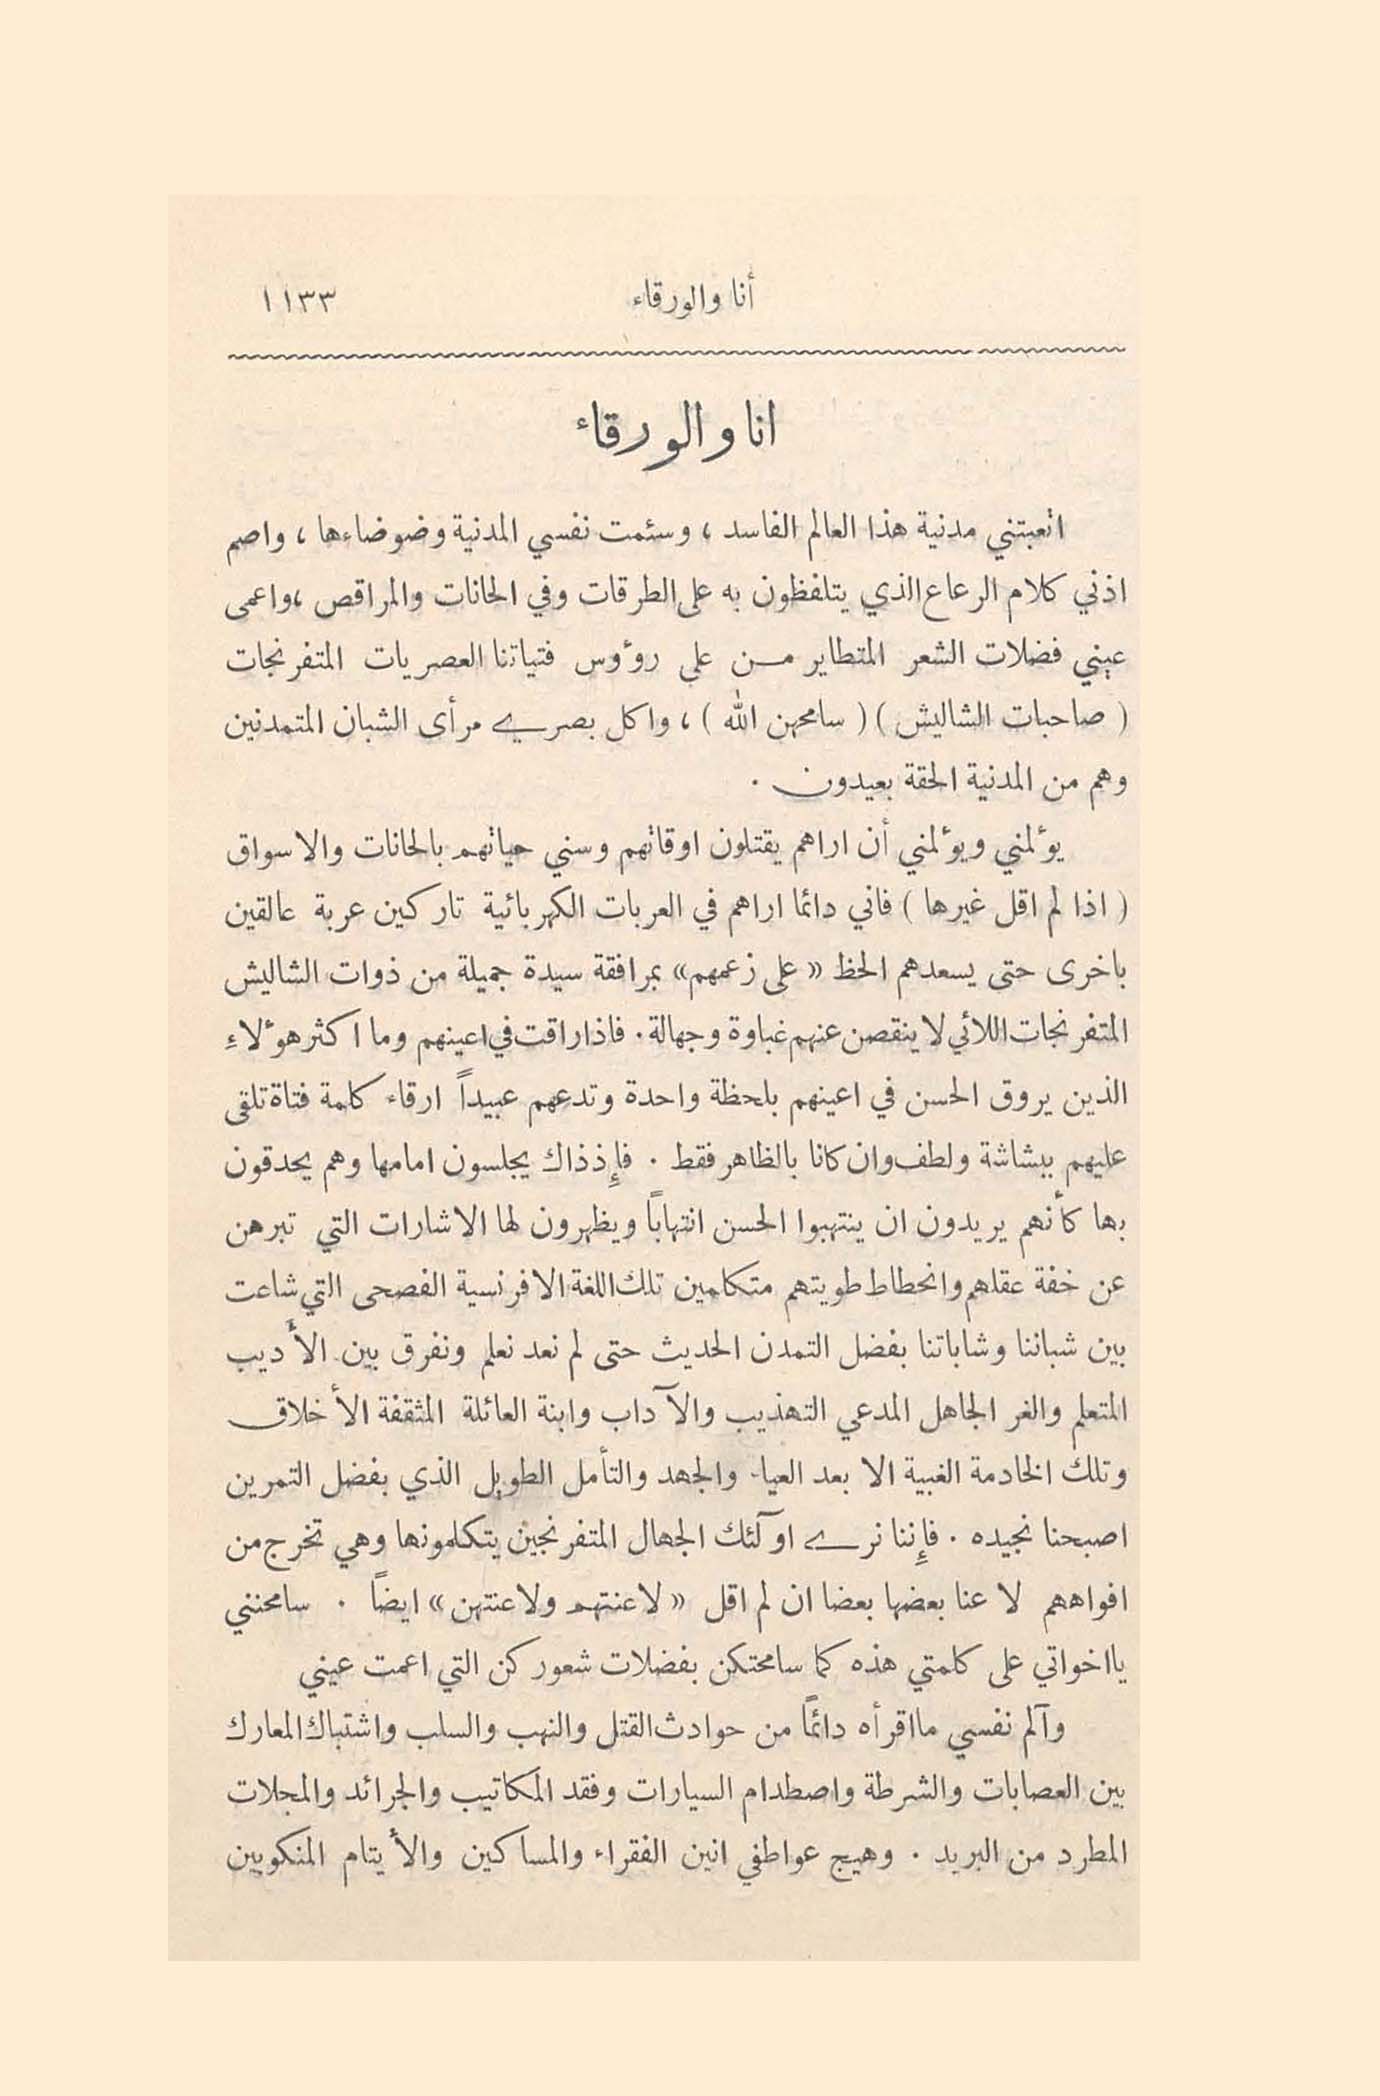 أنا والورقاء ١١٣٣
انا والورقاء
اتعبتني مدنية هذا العالم الفاسد ، وسئمت نفسي المدنية وضوضاءها ، واصم
اذني كلام الرعاع الذي يتلفظون به على الطرقات وفي الحانات والمراقص ، واعمى
عيني فضلات الشعر المتطاير من على روؤس فتياتنا العصريات المتفرنجات
( صاحبات الشاليش ) ( سامحهن الله ) ، واكل بصري مرأى الشبان المتمدنين
وهم من المدنية الحقة بعيدون .
يوءلمني ويوءلمني أن اراهم يقتلون اوقاتهم وسني حياتهم بالحانات والاسواق
( اذا لم اقل غيرها ) فاني دائما اراهم في العربات الكهربائية تاركين عربة عالقين
باخرى حتى يسعدهم الحظ « على زعمهم » بمرافقة سيدة جميلة من ذوات الشاليش
المتفرنجات اللائي لا ينقصن عنهم غباوة وجهالة . فاذا راقت في اعينهم وما اكثر هوءلاءِ
الذين يروق الحسن في اعينهم بلحظة واحدة وتدعهم عبيداً ارقاء كلمة فتاة تلقى
عليهم ببشاشة ولطف وان كانا بالظاهر فقط . فإِذ ذاك يجلسون امامها وهم يحدقون
بها كأنهم يريدون ان ينتهبوا الحسن انتهاباً ويظهرون لها الاشارات التي تبرهن
عن خفة عقلهم وانحطاط طويتهم متكلمين تلك اللغة الافرنسية الفصحى التي شاعت
بين شباننا وشاباتنا بفضل التمدن الحديث حتى لم نعد نعلم ونفرق بين الأديب
المتعلم والغر الجاهل المدعي التهذيب والآداب وابنة العائلة المثقفة الأخلاق
وتلك الخادمة الغبية الا بعد العياء والجهد والتأمل الطويل الذي بفضل التمرين
اصبحنا نجيده . فإِننا نرى اولئك الجهال المتفرنجين يتكلمونها وهي تخرج من
افواههم لاعنا بعضها بعضا ان لم اقل « لاعنتهم ولاعنتهن » ايضاً . سامحنني
يااخواتي على كلمتي هذه كما سامحتكن بفضلات شعوركن التي اعمت عيني
وآلم نفسي مااقرأه دائماً من حوادث القتل والنهب والسلب واشتباك المعارك
بين العصابات والشرطة واصطدام السيارات وفقد المكاتيب والجرائد والمجلات
المطرد من البريد . وهيج عواطفي انين الفقراء والمساكين والأيتام المنكوبين